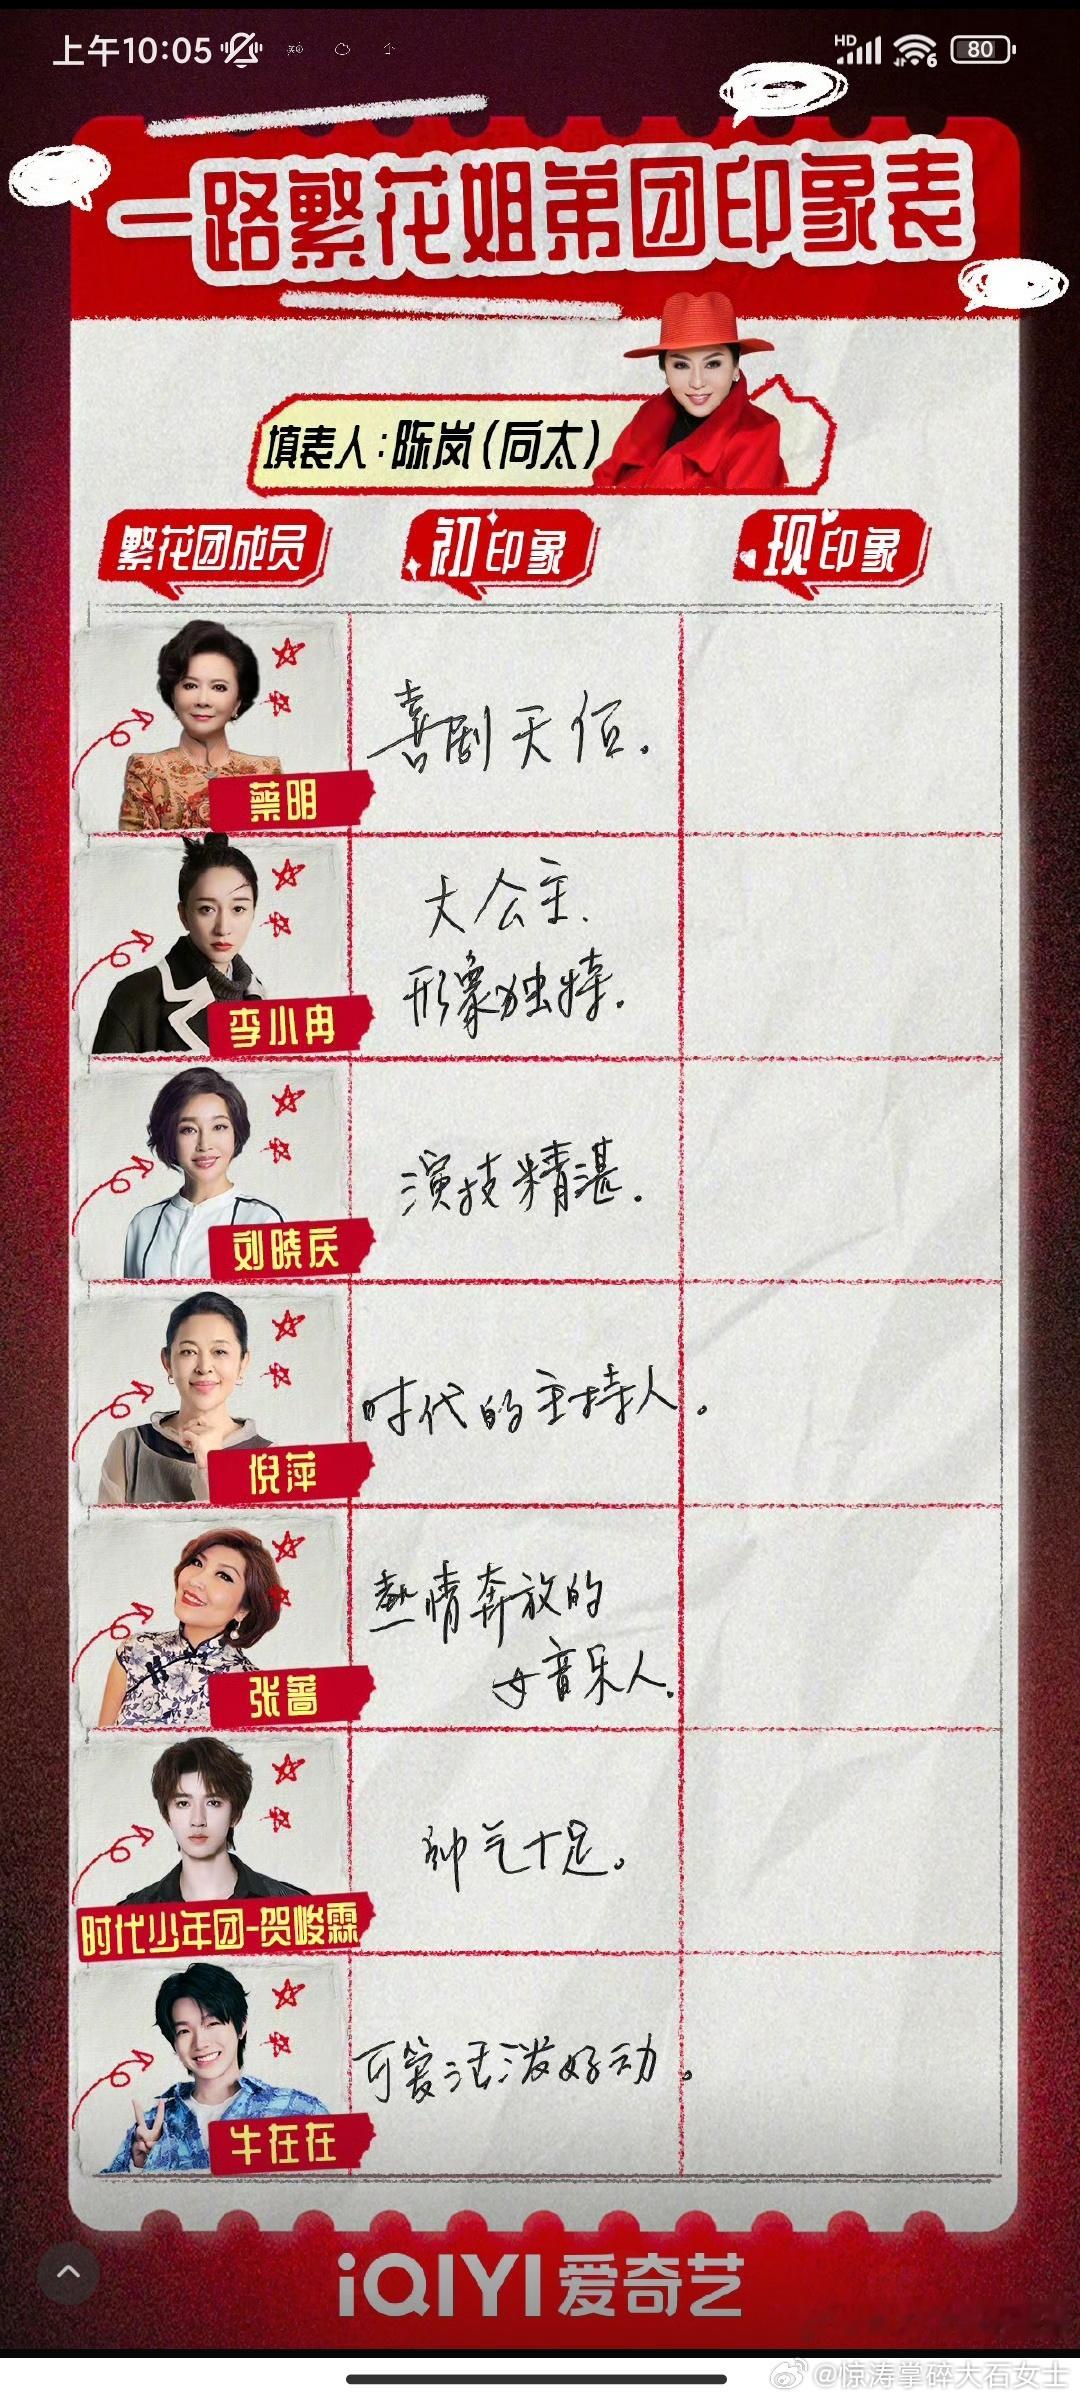 上午10:05
HD
6
80
一路繁花姐弟团印象表
填表人:陈岚(向太)
繁花团成员 初印象 现印象
蔡明
喜剧天佰.
李小冉
大公主.
形象独特.
刘晓庆
演技精湛.
倪萍
时代的主持人。
张蔷
热情奔放的
女音乐人.
时代少年团-贺峻霖
帅气十足。
牛在在
可爱活泼好动。
iQIYI爱奇艺
@惊涛掌碎大石女士